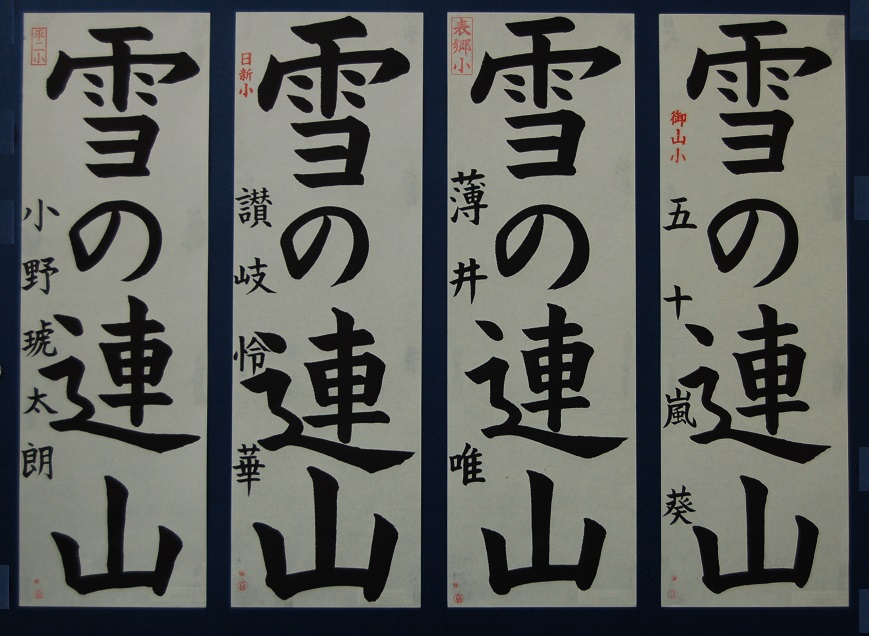 五十嵐葵
御山小
雪の連山
薄井唯
表郷小
雪の連山
讃岐怜華
日新小
雪の連山
小野琥太朗
平二小
雪の連山